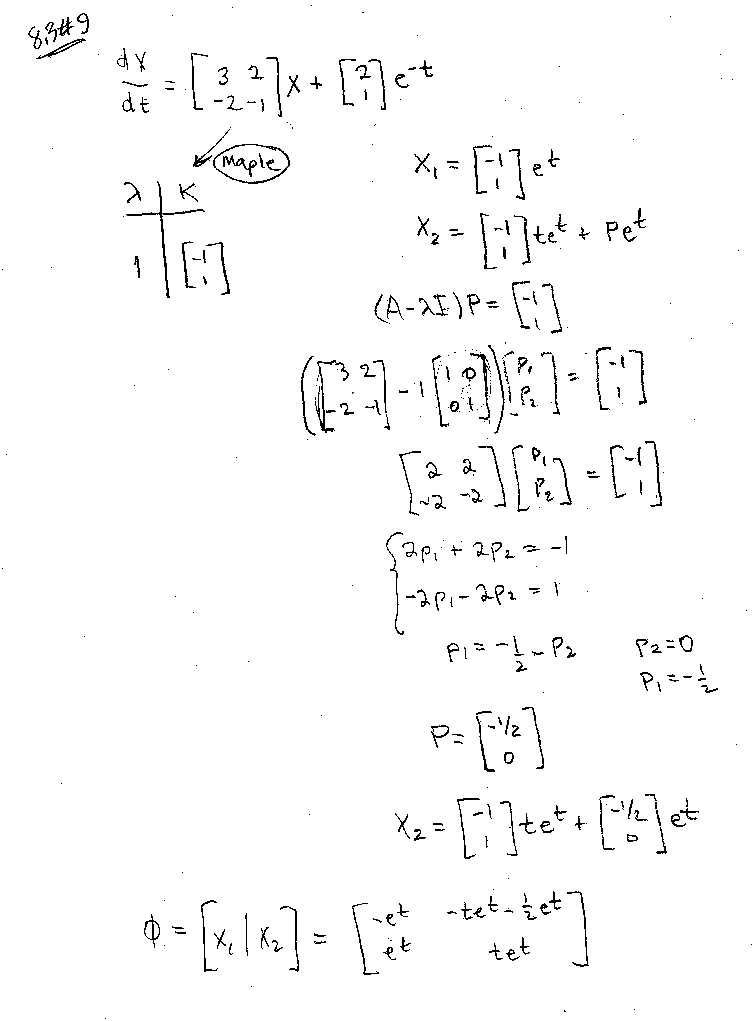 8.3#9
dX/dt = [3 2; -2 -1] X + [2; 1] e^-t
Maple
λ | K
1 | [-1; 1]
X₁ = [-1; 1] e^t
X₂ = [-1; 1] te^t + Pe^t
(A-λI)P = [-1; 1]
([3 2; -2 -1] - 1 [1 0; 0 1]) [P₁; P₂] = [-1; 1]
[2 2; -2 -2] [P₁; P₂] = [-1; 1]
{2P₁ + 2P₂ = -1
-2P₁ - 2P₂ = 1
P₁ = -1/2 - P₂ P₂ = 0
P₁ = -1/2
P = [-1/2; 0]
X₂ = [-1; 1] te^t + [-1/2; 0] e^t
Φ = [X₁ | X₂] = [-e^t -te^t - 1/2 e^t; e^t te^t]